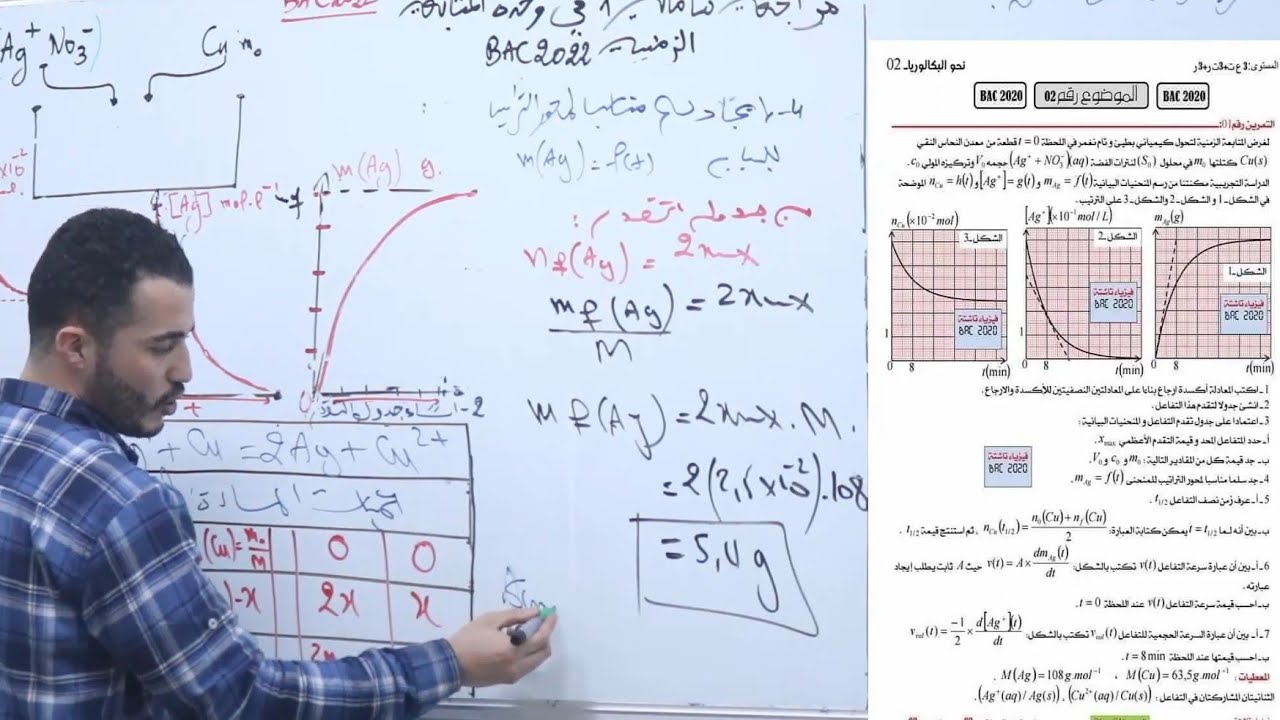 (Ag⁺ No₃⁻)
Cu m₀
BAC2022
في وحدة المتابعة
الزمنية BAC2022
m(Ag) = f(t)
من جدول التقدم :
n_f(Ag) = 2xmax
m_f(Ag) / M = 2xmax
m_f(Ag) = 2xmax . M.
= 2(2,5x10⁻²).108
= 5,4 g
[Ag] mol.l⁻¹
m(Ag) g.
+ Cu = 2Ag + Cu²⁺
كميات المادة
(Cu) = m₀/M
0
0
-x
2x
x
المستوى: 3 ع ت+3ت ر+3ر
نحو البكالوريا - 02
BAC 2020
الموضوع رقم 02
BAC 2020
التمرين رقم 01:
لغرض المتابعة الزمنية لتحول كيميائي بطيئ و تام نغمر في اللحظة t = 0 قطعة من معدن النحاس النقي
Cu(s) كتلتها m₀ في محلول (S₀) لنترات الفضة (Ag⁺ + NO₃⁻)(aq) حجمه V₀ وتركيزه المولي c₀.
الدراسة التجريبية مكنتنا من رسم المنحنيات البيانية m_Ag = f(t) و [Ag⁺] = g(t) و n_Cu = h(t) الموضحة
في الشكل-1 و الشكل-2 والشكل-3 على الترتيب.
n_Cu(×10⁻² mol)
الشكل-3
فيزياء تاشتة
BAC 2020
1
0
8
t(min)
[Ag⁺](×10⁻¹ mol / L)
الشكل-2
فيزياء تاشتة
BAC 2020
1
0
8
t(min)
m_Ag(g)
الشكل-1
فيزياء تاشتة
BAC 2020
0
8
t(min)
1- اكتب المعادلة أكسدة ارجاع بناءا على المعادلتين النصفيتين للأكسدة والارجاع.
2- انشئ جدولا لتقدم هذا التفاعل.
3- اعتمادا على جدول تقدم التفاعل و المنحنيات البيانية :
أ- حدد المتفاعل المحد و قيمة التقدم الأعظمي x_max.
ب- جد قيمة كل من المقادير التالية: m₀ و c₀ و V₀.
فيزياء تاشتة
BAC 2020
4- جد سلما مناسبا لمحور التراتيب للمنحنى m_Ag = f(t).
5- أ- عرف زمن نصف التفاعل t₁/₂.
ب- بين أنه لما t = t₁/₂ يمكن كتابة العبارة: n_Cu(t₁/₂) = (n₀(Cu) + n_f(Cu)) / 2 ، ثم استنتج قيمة t₁/₂.
6- أ- بين أن عبارة سرعة التفاعل v(t) تكتب بالشكل: v(t) = A × dm_Ag(t)/dt حيث A ثابت يطلب إيجاد
عبارته.
ب- احسب قيمة سرعة التفاعل v(t) عند اللحظة t = 0.
7- أ- بين أن عبارة السرعة الحجمية للتفاعل v_vol(t) تكتب بالشكل: v_vol(t) = -1/2 × d[Ag⁺](t)/dt
ب- احسب قيمتها عند اللحظة t = 8 min.
المعطيات : M(Cu) = 63,5 g.mol⁻¹ ، M(Ag) = 108 g.mol⁻¹.
الثانيتان المشاركتان في التفاعل : (Cu²⁺(aq)/Cu(s)) ، (Ag⁺(aq)/Ag(s)).